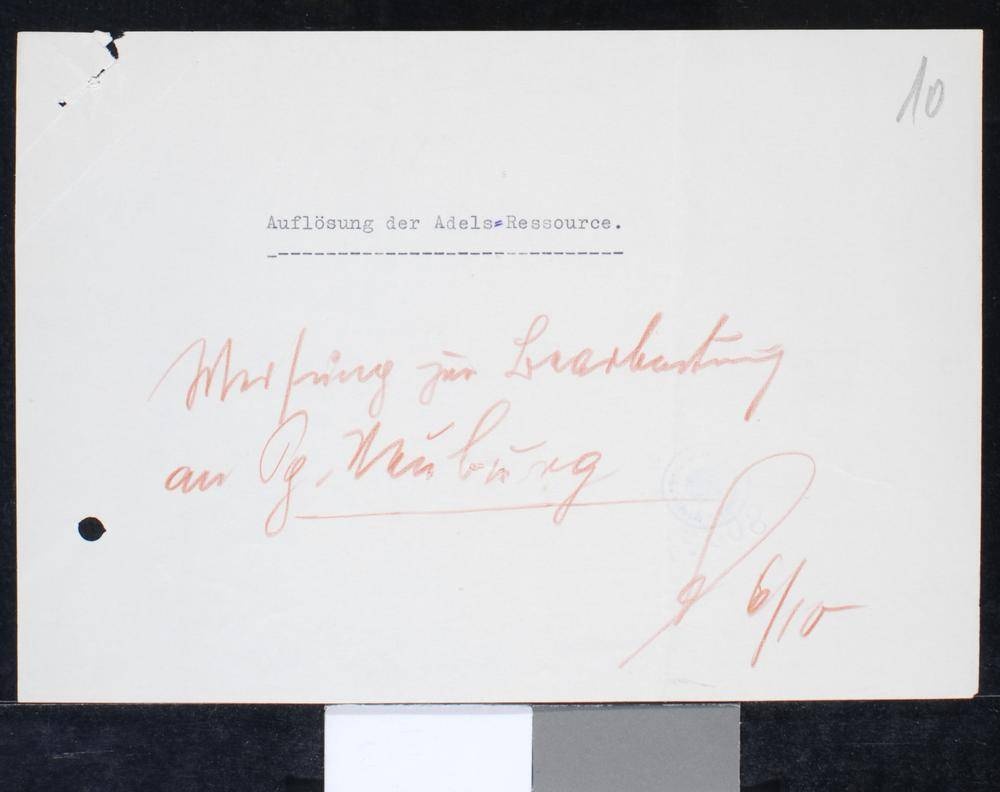 10
Auflösung der Adels=Ressource.
Weisung zur Bearbeitung
an Pg. Neuburg
6/10